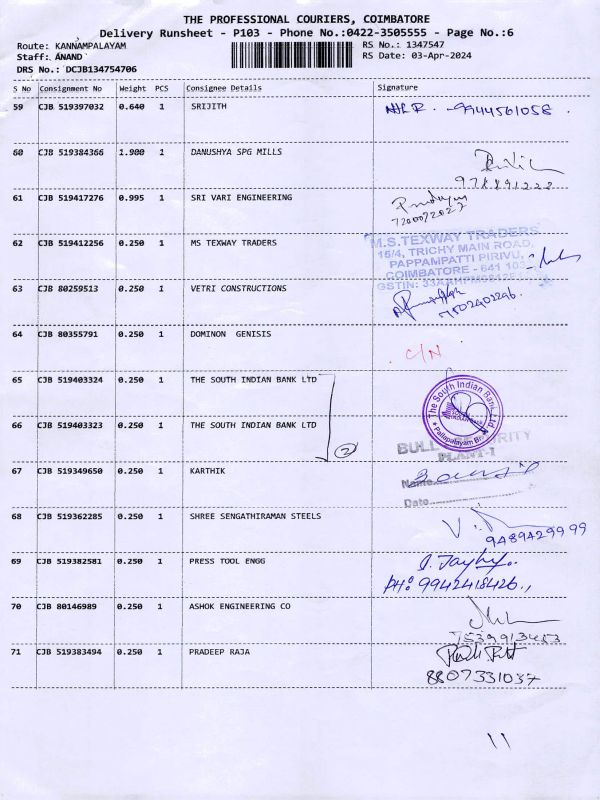 THE PROFESSIONAL COURIERS, COIMBATORE
Delivery Runsheet - P103 - Phone No.:0422-3505555 - Page No.:6
Route: KANNAMPALAYAM RS No.: 1347547
Staff: ANAND RS Date: 03-Apr-2024
DRS No.: DCJB134754706
S No Consignment No Weight PCS Consignee Details Signature
59 CJB 519397032 0.640 1 SRIJITH 9944561058
60 CJB 519384366 1.900 1 DANUSHYA SPG MILLS
61 CJB 519417276 0.995 1 SRI VARI ENGINEERING
62 CJB 519412256 0.250 1 MS TEXWAY TRADERS
M.S.TEXWAY TRADERS
16/4, TRICHY MAIN ROAD,
PAPPAMPATTI PIRIVU,
COIMBATORE - 641 103
GSTIN:
63 CJB 80259513 0.250 1 VETRI CONSTRUCTIONS
7502402296.
64 CJB 80355791 0.250 1 DOMINON GENISIS
C/N
65 CJB 519403324 0.250 1 THE SOUTH INDIAN BANK LTD
The South Indian Bank Ltd
Pallapalayam
66 CJB 519403323 0.250 1 THE SOUTH INDIAN BANK LTD
2
PLANT-1
67 CJB 519349650 0.250 1 KARTHIK
Name
Date
68 CJB 519362285 0.250 1 SHREE SENGATHIRAMAN STEELS
9489429999
69 CJB 519382581 0.250 1 PRESS TOOL ENGG
PH: 9942418426.,
70 CJB 80146989 0.250 1 ASHOK ENGINEERING CO
7539913453
71 CJB 519383494 0.250 1 PRADEEP RAJA
8807331037
11